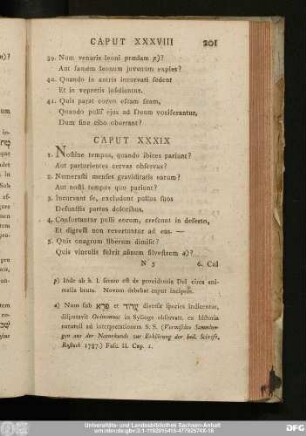 CAPUT XXXVIII 201
39. Num venaris leoni prædam p)?
Aut famem leonum juvenum exples?
40. Quando in antris incurvati sident
Et in vepretis insidiantur.
41. Quis parat corvo escam suam,
Quando pulli ejus ad Deum vociferantur,
Dum sine cibo oberrant?
CAPUT XXXIX
1. Nostine tempus, quando ibices pariant?
Aut parturientes cervas observas?
2. Numerasti menses graviditatis earum?
Aut nosti tempus quo pariunt?
3. Incurvant se, excludunt pullos suos
Defunctis partus doloribus.
4. Confortantur pulli eorum, crescunt in deserto,
Et digressi non revertuntur ad eas. —
5. Quis onagrum liberum dimisit?
Quis vinculis solvit asinum silvestrem q)?
N 5 6. Cui
p) Inde ab h. l. sermo est de providentia Dei circa ani-
malia bruta. Novum debebat caput incipere.
q) Num sub פרא et ערוד diversæ species indicentur,
disputavit Oedmannus in Sylloge observatt. ex historia
naturali ad interpretationem S. S. (Vermischte Sammlun-
gen aus der Naturkunde zur Erklärung der heil. Schrift,
Rostock 1787.) Fasc. II. Cap. 1.
Universitäts- und Landesbibliothek Sachsen-Anhalt
DFG